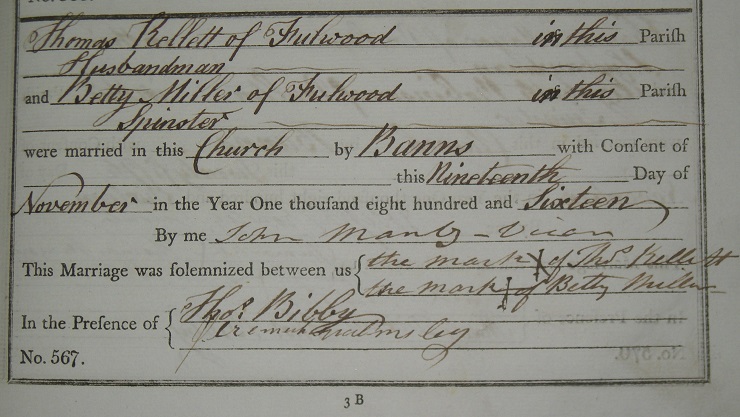 Thomas Kellett of Fulwood in this Pariſh
Husbandman
and Betty Miller of Fulwood in this Pariſh
Spinster
were married in this Church by Banns with Conſent of
this Nineteenth Day of
November in the Year One thouſand eight hundred and Sixteen
By me John Manby - Vicar
This Marriage was ſolemnized between us { the mark X of Thos. Kellett
the mark X of Betty Miller
In the Preſence of { Thos. Bibby
Jeremiah Walmsley
No. 567.
3 B